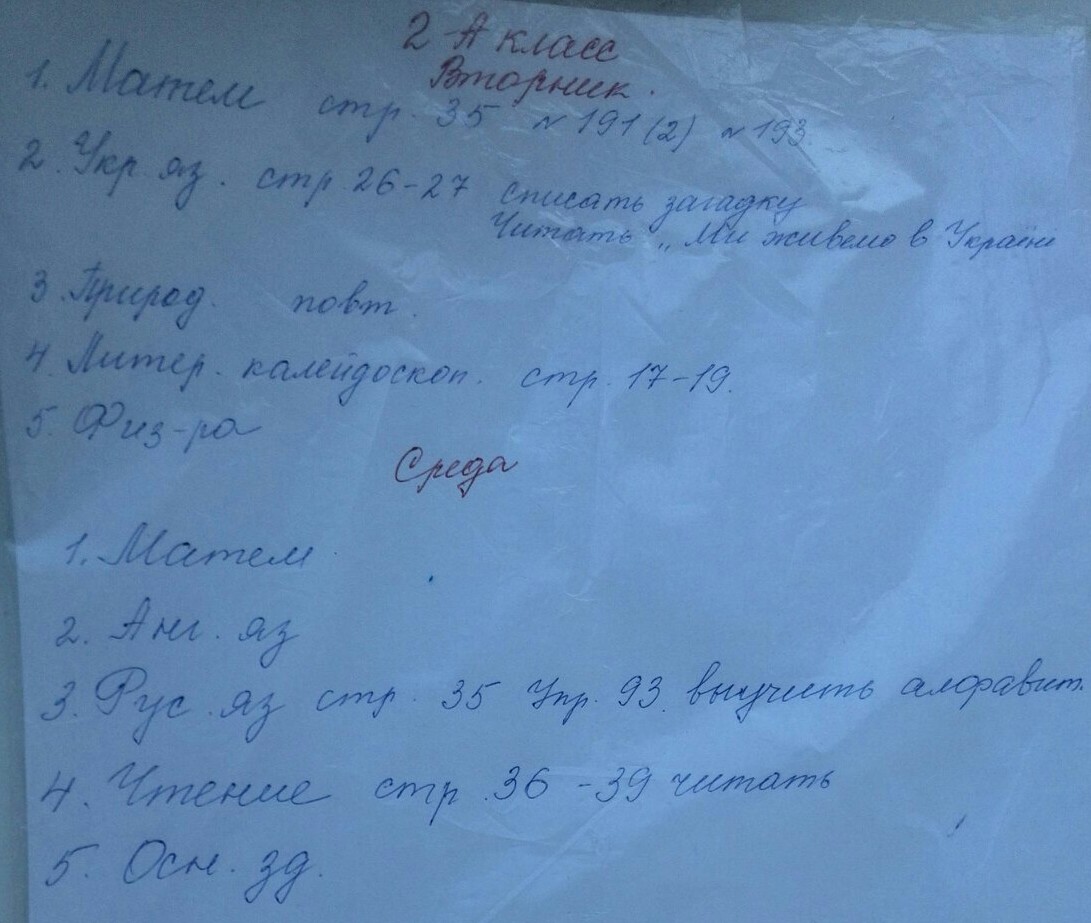 2 А класс
Вторник.
1. Матем стр. 35 №191(2) №193.
2. Укр. яз. стр. 26-27 списать загадку
Читать „Ми живемо в Україні
3. Природ. повт.
4. Литер. калейдоскоп. стр. 17-19.
5. Физ-ра
Среда
1. Матем
2. Анг. яз
3. Рус. яз стр. 35 Упр. 93. выучить алфавит.
4. Чтение стр. 36-39 читать
5. Осн. зд.